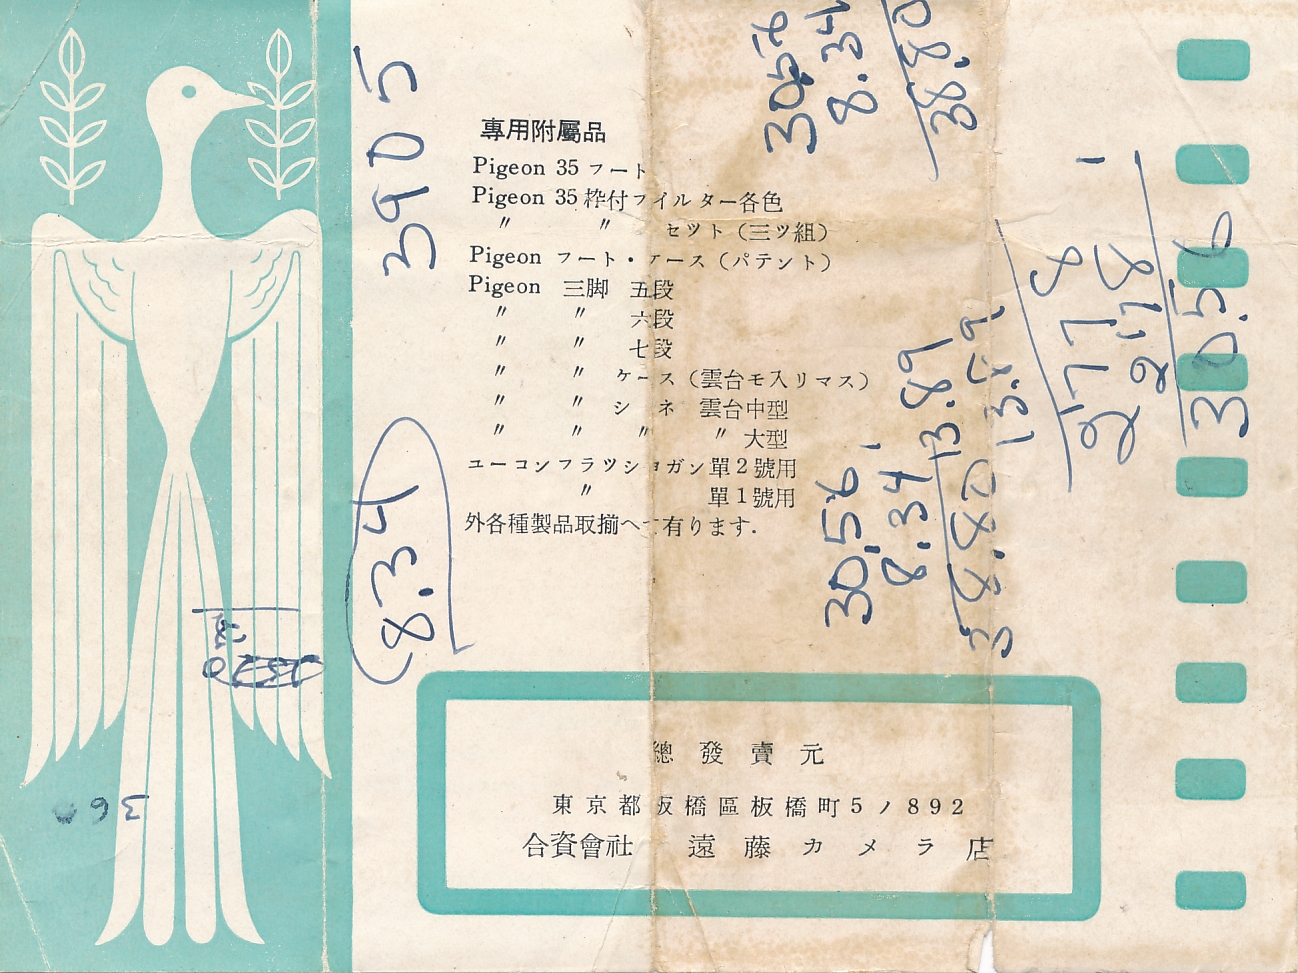 專用附屬品
Pigeon 35 フート
Pigeon 35 枠付フイルター各色
〃 〃 セツト（三ツ組）
Pigeon フート・ケース（パテント）
Pigeon 三脚 五段
〃 〃 六段
〃 〃 七段
〃 〃 ケース（雲台モ入リマス）
〃 〃 シネ 雲台中型
〃 〃 〃 〃 大型
ユーコンフラツシヨガン單2號用
〃 單1號用
外各種製品取揃へて有ります.
總發賣元
東京都板橋區板橋町5ノ892
合資會社 遠藤カメラ店
3905
8.34
30.56
8.34
38.80
30.56
8.34
38.80
13.89
13.89
2778
278
30.56
360